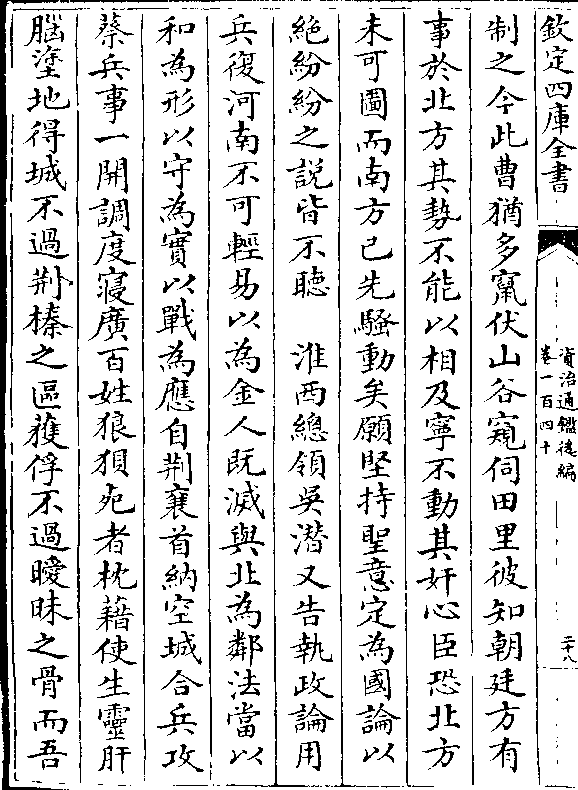 欽定四庫全書
制之今此曹猶多竄伏山谷窺伺田里彼知朝廷方有
事於北方其勢不能以相及寧不動其奸心臣恐北方
未可圖而南方已先騷動矣願堅持聖意定為國論以
絶紛紛之説皆不聽　淮西總領吳潛又告執政論用
兵復河南不可輕易以為金人既滅與北為鄰法當以
和為形以守為實以戰為應自荆襄首納空城合兵攻
蔡兵事一開調度寖廣百姓狼狽死者枕藉使生靈肝
腦塗地得城不過荆榛之區獲俘不過曖昧之骨而吾
資治通鑑後編
卷一百四十
二十八